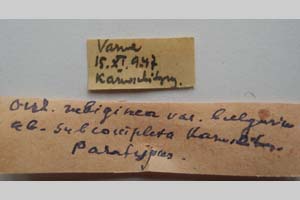 Varna
15.XI.947
Karnoschitzky.
Orrh. rubiginea var. bulgarica
ab. subcompleta Karnoschitz.
Paratypus.